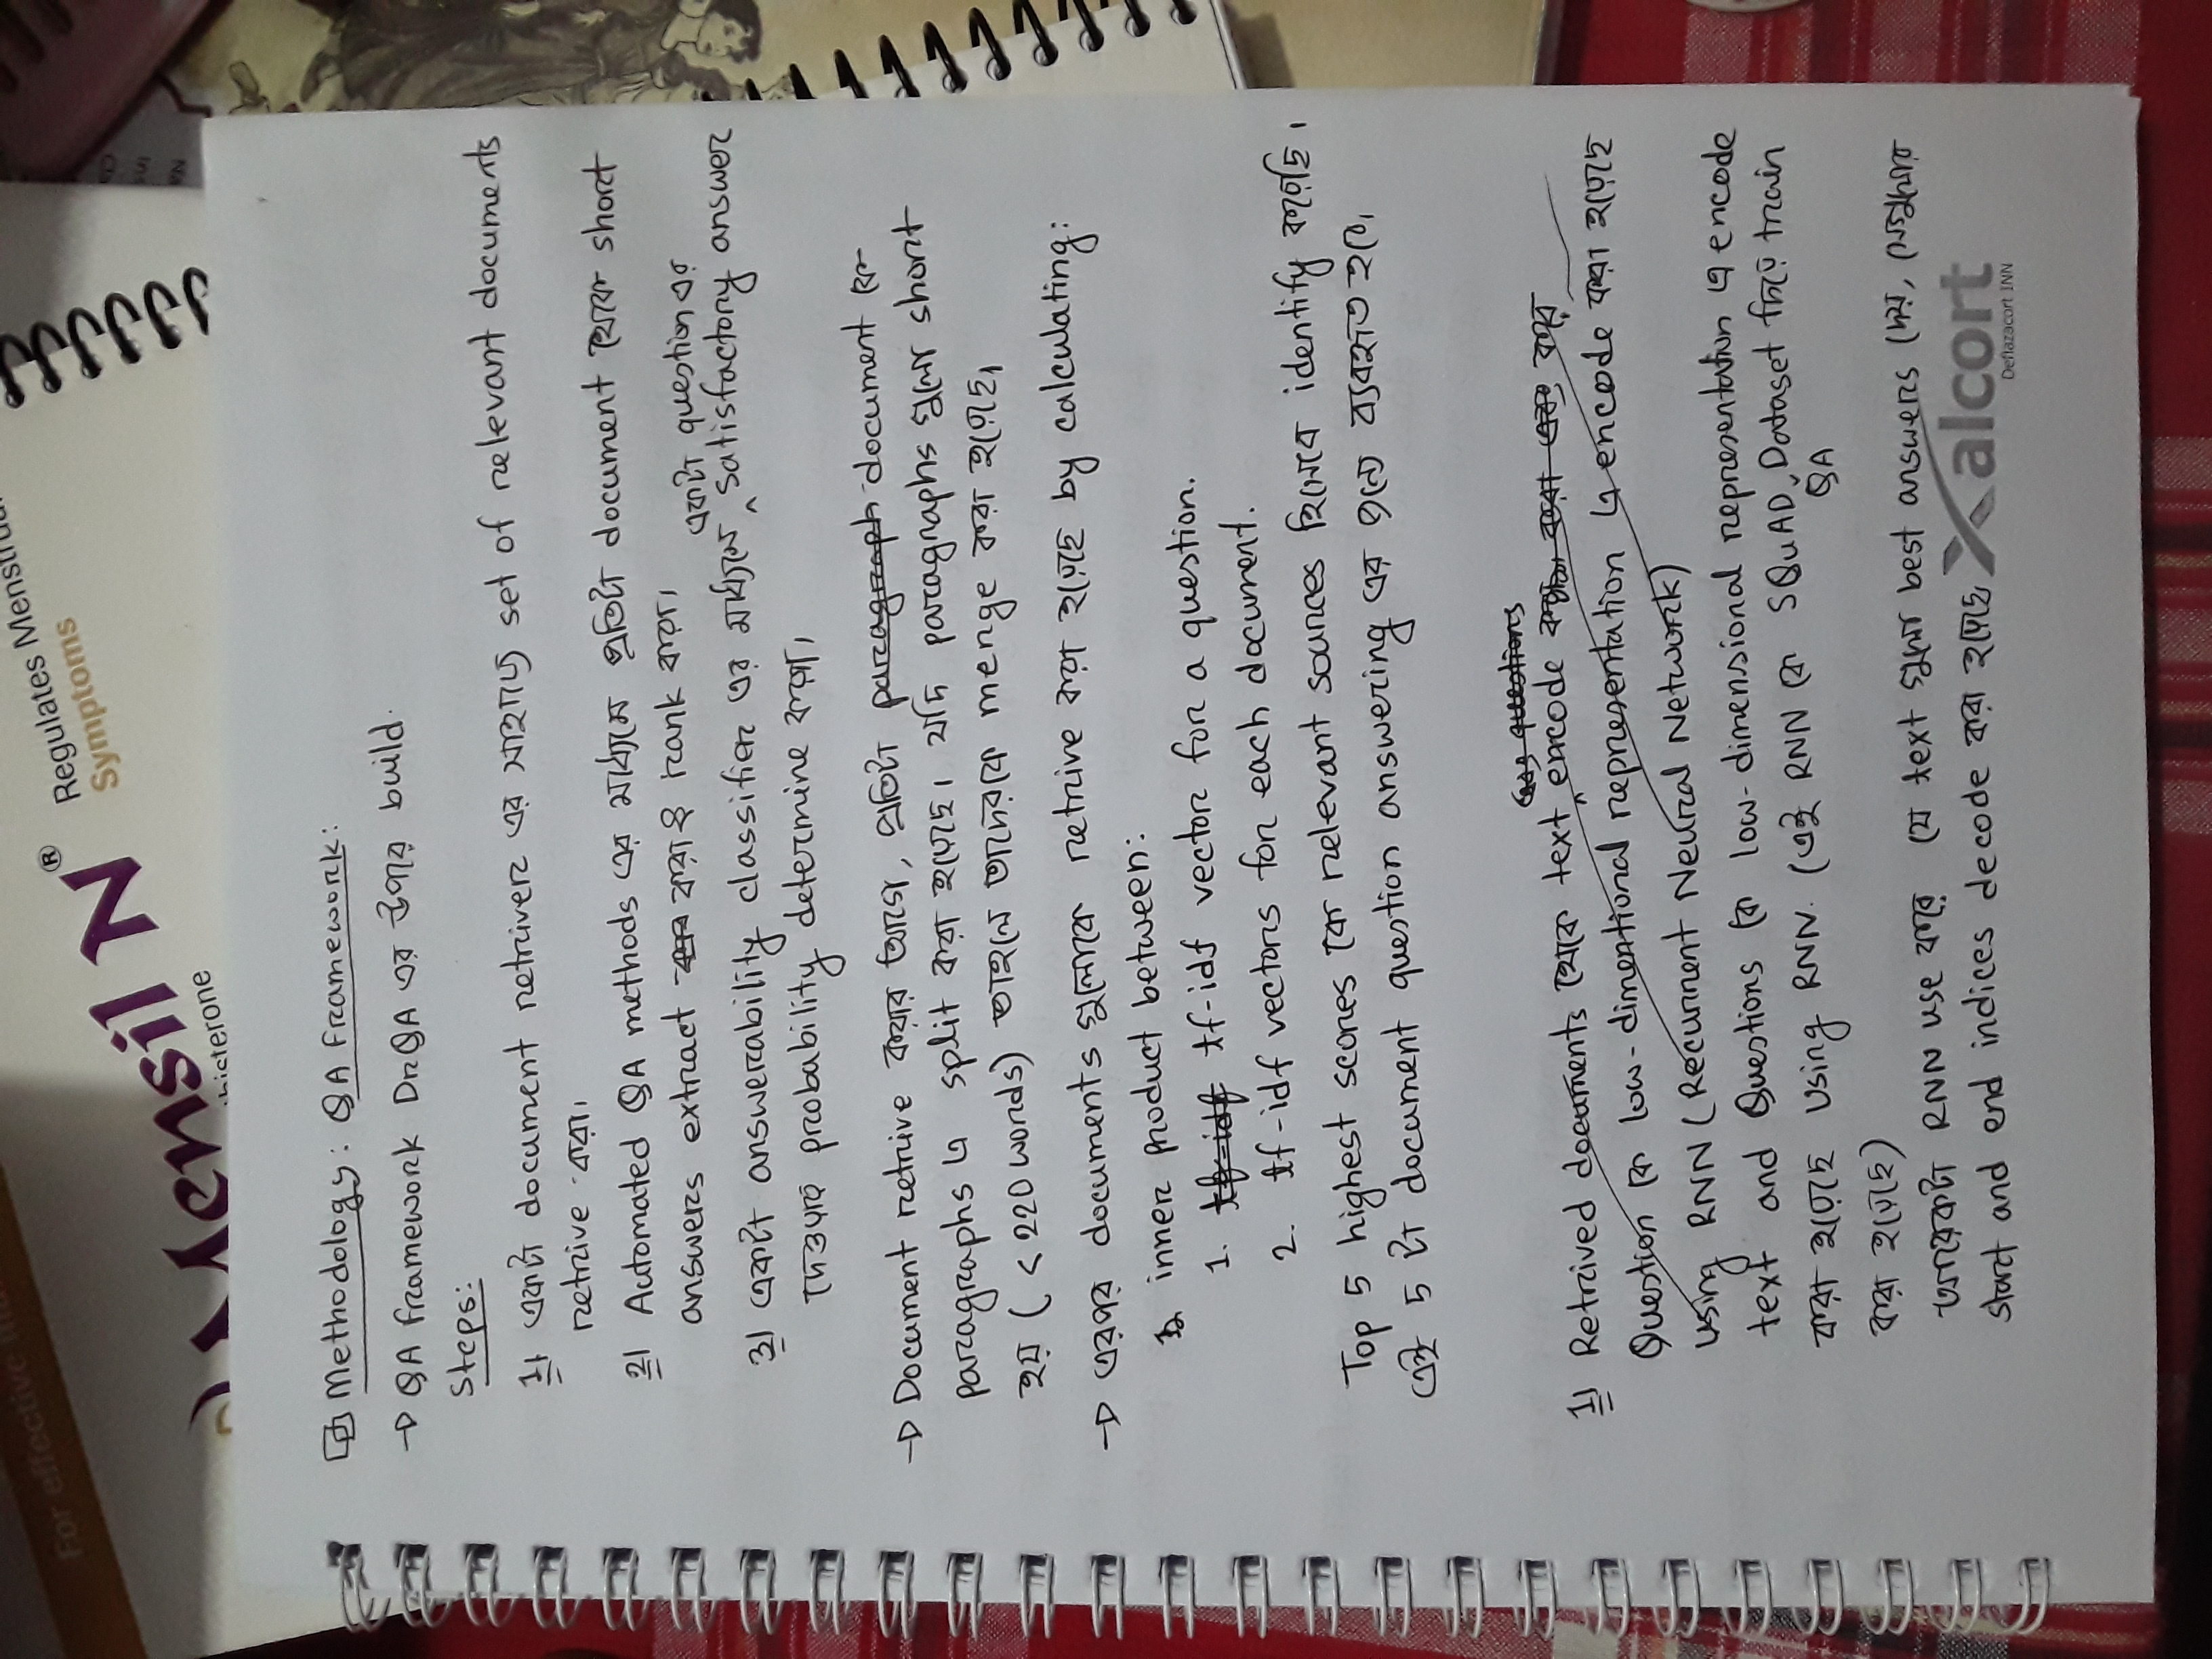 For effective
Mensil N®
Regulates Menstrua
Symptoms
histerone
Methodology: QA Framework:
→ QA framework DrQA এর উপরে build.
Steps:
1। একটা document retriver এর সাহায্যে set of relevant documents
retrive করা।
2। Automated QA methods এর মাধ্যমে প্রতিটা document থেকে short
answers extract করা ও rank করা।
একটা question এর
3। একটা answerability classifier এর মাধ্যমে ^ satisfactory answer
দেওয়ার probability determine করা।
→ Document retrive করার আগে, প্রতিটা paragraph document কে
paragraphs এ split করা হয়েছে। যদি paragraphs গুলো short
হয় ( < 220 words) তাহলে তাদেরকে merge করা হয়েছে।
→ এরপর documents গুলোকে retrive করা হয়েছে by calculating:
inner product between:
1. tf-idf tf-idf vector for a question.
2. tf-idf vectors for each document.
Top 5 highest scores কে relevant sources হিসেবে identify করেছি।
এই 5 টা document question answering এর জন্যে ব্যবহৃত হবে।
questions
1। Retrived documents থেকে text ^ encode করা এবং করে
Question কে low-dimentional representation এ encode করা হয়েছে
using RNN (Recurrent Neural Network)
text and Questions কে low-dimensional representation এ encode
করা হয়েছে using RNN. (এই RNN কে SQuAD Dataset দিয়ে train
QA
করা হয়েছে)
আরেকটা RNN use করে যে text গুলো best answers দেয়, সেগুলোর
start and end indices decode করা হয়েছে
Xalcort
Deflazacort INN